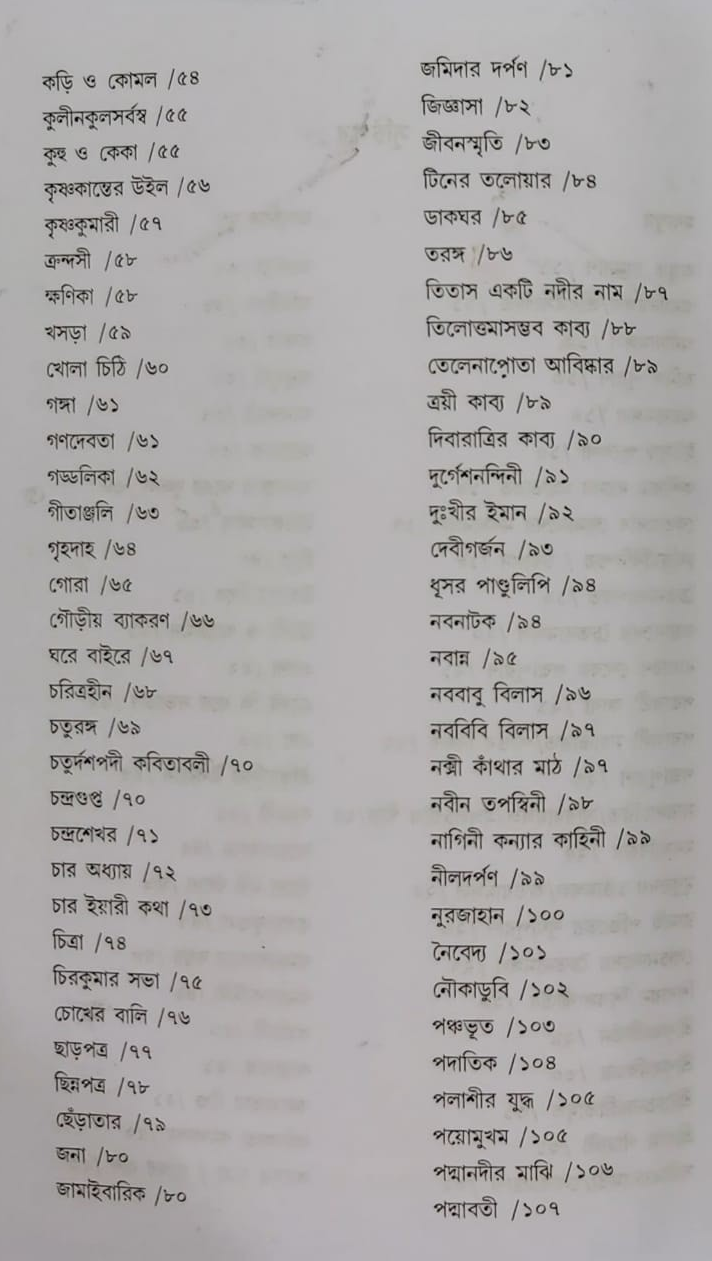 কড়ি ও কোমল /৫৪
কুলীনকুলসর্বস্ব /৫৫
কুহু ও কেকা /৫৫
কৃষ্ণকান্তের উইল /৫৬
কৃষ্ণকুমারী /৫৭
ক্রন্দসী /৫৮
ক্ষণিকা /৫৮
খসড়া /৫৯
খোলা চিঠি /৬০
গঙ্গা /৬১
গণদেবতা /৬১
গড্ডলিকা /৬২
গীতাঞ্জলি /৬৩
গৃহদাহ /৬৪
গোরা /৬৫
গৌড়ীয় ব্যাকরণ /৬৬
ঘরে বাইরে /৬৭
চরিত্রহীন /৬৮
চতুরঙ্গ /৬৯
চতুর্দশপদী কবিতাবলী /৭০
চন্দ্রগুপ্ত /৭০
চন্দ্রশেখর /৭১
চার অধ্যায় /৭২
চার ইয়ারী কথা /৭৩
চিত্রা /৭৪
চিরকুমার সভা /৭৫
চোখের বালি /৭৬
ছাড়পত্র /৭৭
ছিন্নপত্র /৭৮
ছেঁড়াতার /৭৯
জনা /৮০
জামাইবারিক /৮০
জমিদার দর্পণ /৮১
জিজ্ঞাসা /৮২
জীবনস্মৃতি /৮৩
টিনের তলোয়ার /৮৪
ডাকঘর /৮৫
তরঙ্গ /৮৬
তিতাস একটি নদীর নাম /৮৭
তিলোত্তমাসম্ভব কাব্য /৮৮
তেলেনাপোতা আবিষ্কার /৮৯
ত্রয়ী কাব্য /৮৯
দিবারাত্রির কাব্য /৯০
দুর্গেশনন্দিনী /৯১
দুঃখীর ইমান /৯২
দেবীগর্জন /৯৩
ধূসর পাণ্ডুলিপি /৯৪
নবনাটক /৯৪
নবান্ন /৯৫
নববাবু বিলাস /৯৬
নববিবি বিলাস /৯৭
নক্সী কাঁথার মাঠ /৯৭
নবীন তপস্বিনী /৯৮
নাগিনী কন্যার কাহিনী /৯৯
নীলদর্পণ /৯৯
নুরজাহান /১০০
নৈবেদ্য /১০১
নৌকাডুবি /১০২
পঞ্চভূত /১০৩
পদাতিক /১০৪
পলাশীর যুদ্ধ /১০৫
পয়োমুখম /১০৫
পদ্মানদীর মাঝি /১০৬
পদ্মাবতী /১০৭